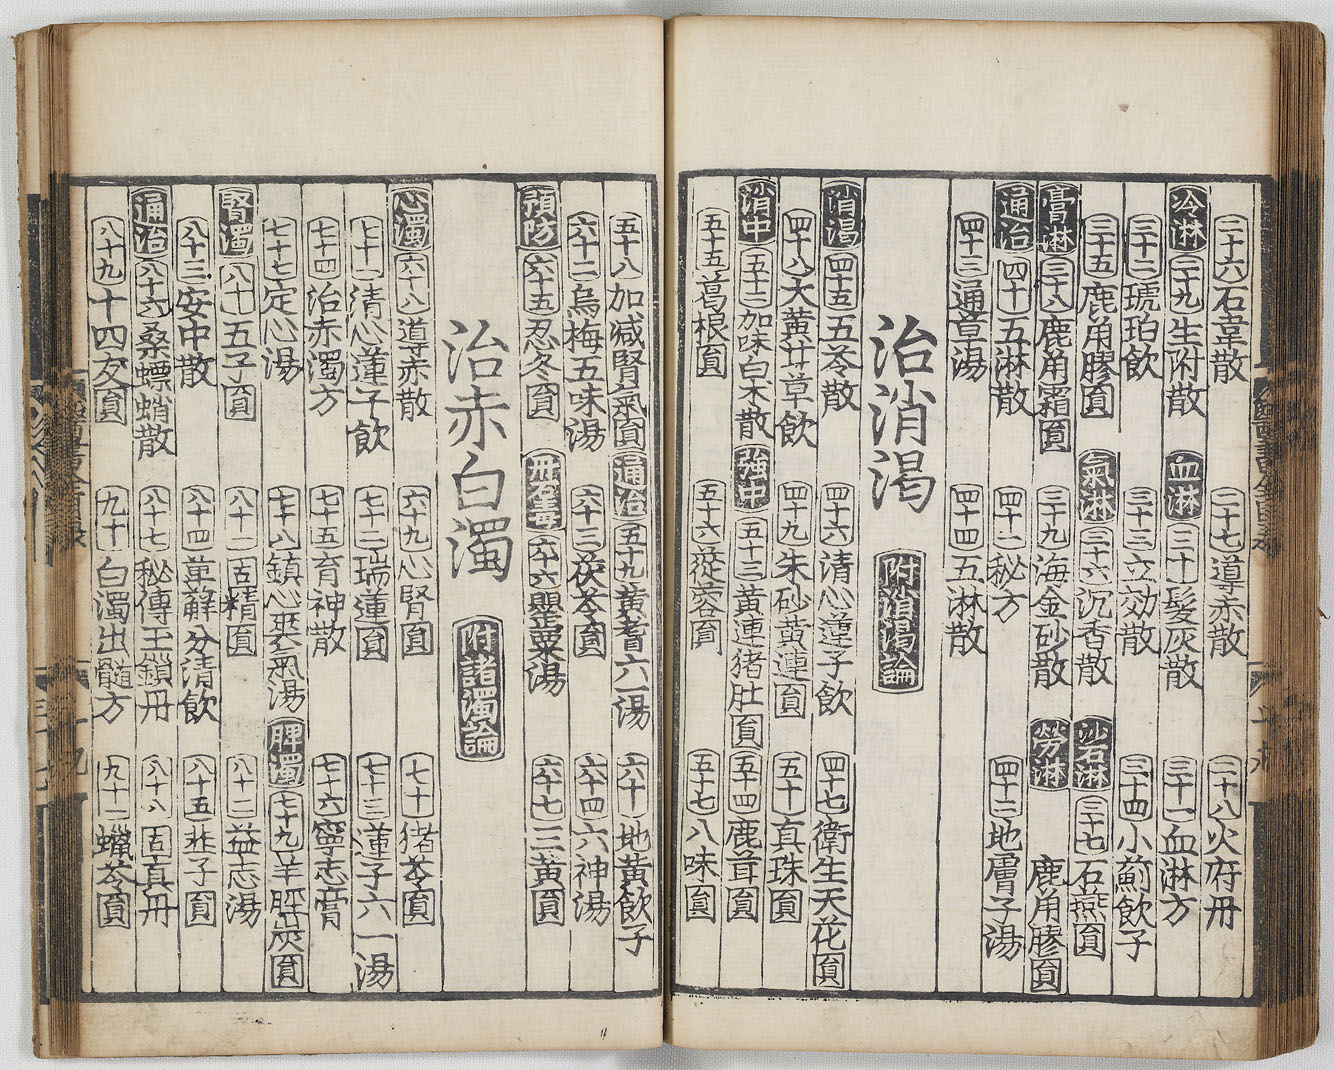 二十六石韋散 二十七導赤散 二十八火府丹
冷淋 二十九生附散 血淋 三十髮灰散 三十一血淋方
三十二琥珀飲 三十三立効散 三十四小薊飲子
三十五鹿角膠圓 氣淋 三十六沉香散 沙石淋 三十七石燕圓
膏淋 三十八鹿角霜圓 三十九海金砂散 勞淋 鹿角膠圓
通治 四十五淋散 四十一秘方 四十二地膚子湯
四十三通草湯 四十四五淋散
治消渴 附消渴論
消渴 四十五五苓散 四十六清心蓮子飲 四十七衛生天花圓
四十八大黃甘草飲 四十九朱砂黃連圓 五十真珠圓
消中 五十二加味白朮散 強中 五十三黃連猪肚圓 五十四鹿茸圓
五十五葛根圓 五十六蓯蓉圓 五十七八味圓
五十八加減腎氣圓 通治 五十九黃耆六一湯 六十地黃飲子
六十二烏梅五味湯 六十三茯苓圓 六十四六神湯
預防 六十五忍冬圓 丹石毒 六十六罌粟湯 六十七三黃圓
治赤白濁 附諸濁論
心濁 六十八導赤散 六十九心腎圓 七十猪苓圓
七十一清心蓮子飲 七十二瑞蓮圓 七十三蓮子六一湯
七十四治赤濁方 七十五育神散 七十六寧志膏
七十七定心湯 七十八鎮心爽氣湯 脾濁 七十九羊脛炭圓
腎濁 八十五子圓 八十一固精圓 八十二益志湯
八十三安中散 八十四萆薢分清飲 八十五韭子圓
通治 八十六桑螵蛸散 八十七秘傳玉鎖丹 八十八固真丹
八十九十四友圓 九十白濁出髓方 九十一蠟苓圓